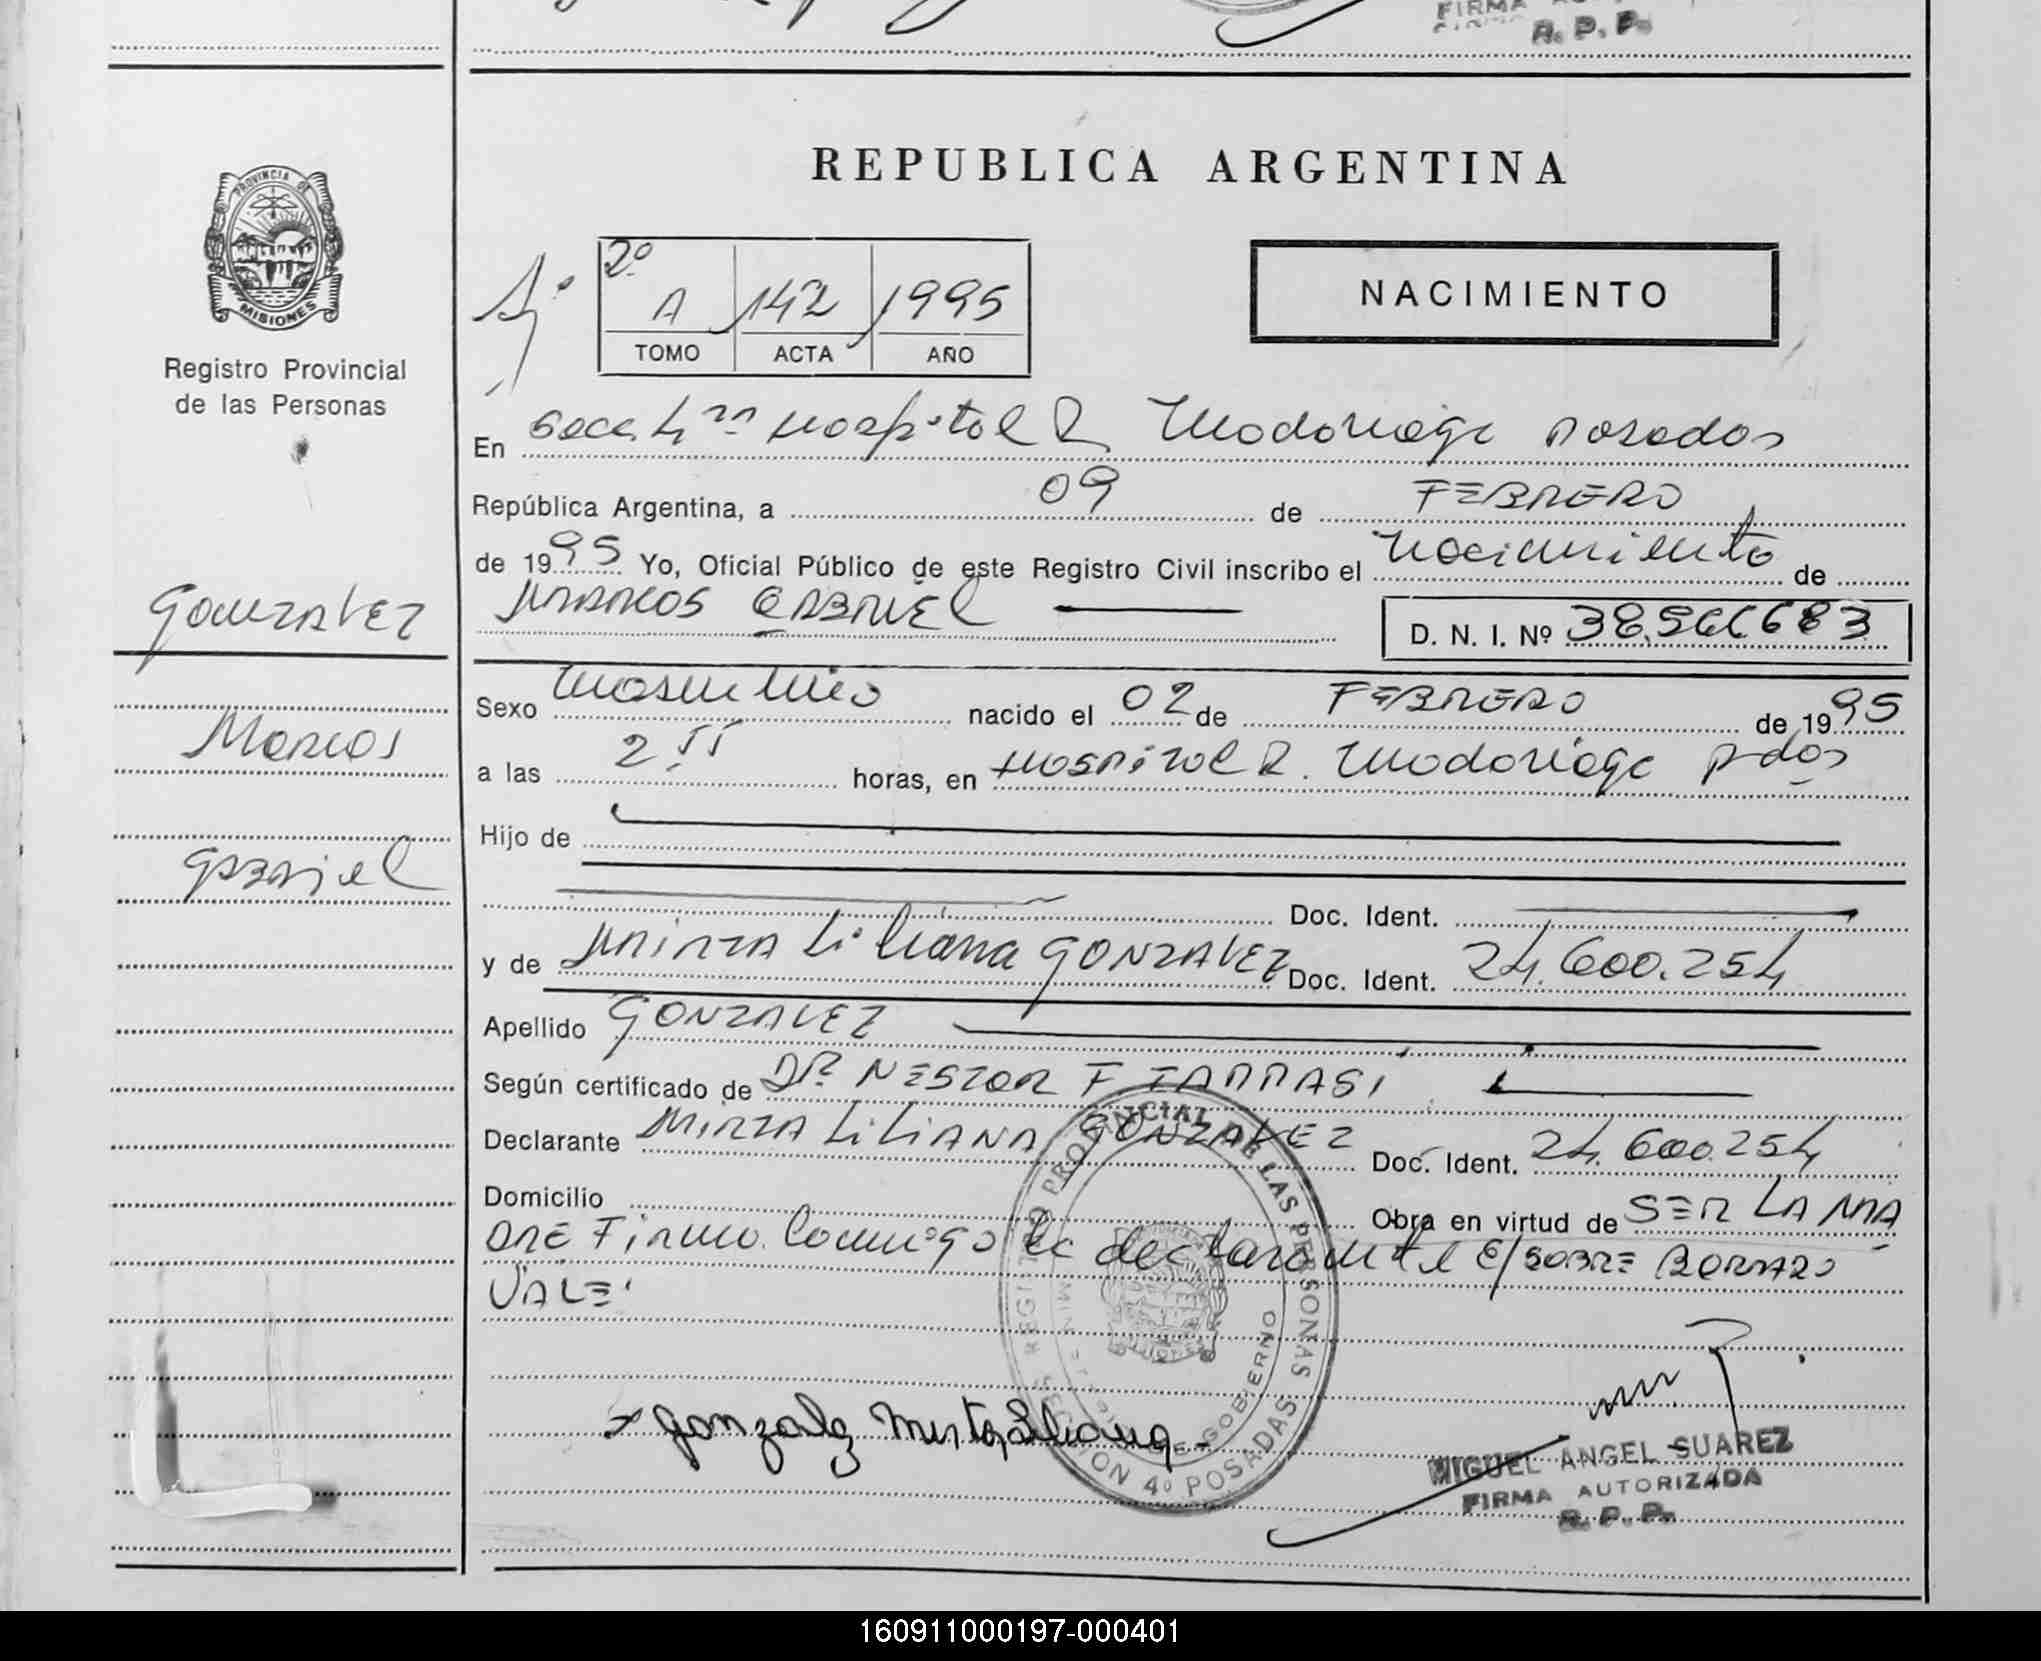 FIRMA
R. P. P.
PROVINCIA DE
MISIONES
Registro Provincial
de las Personas
REPUBLICA ARGENTINA
2º
A 142 1995
TOMO ACTA AÑO
NACIMIENTO
En Secc 4ta Hospital R Madariaga Posadas
República Argentina, a 09 de FEBRERO
de 1995 Yo, Oficial Público de este Registro Civil inscribo el Nacimiento de
MARCOS GABRIEL D. N. I. Nº 38.566683
GONZALEZ
Marcos
Gabriel
Sexo Masculino nacido el 02 de FEBRERO de 1995
a las 2 55 horas, en Hospital R. Madariaga Pdas
Hijo de
Doc. Ident.
y de MIRTA Liliana GONZALEZ Doc. Ident. 24.600.254
Apellido GONZALEZ
Según certificado de DR NESTOR F TARRASI
Declarante MIRTA LILIANA GONZALEZ Doc. Ident. 24.600.254
Domicilio Obra en virtud de SER LA MA
DRE Firmo. Conmigo la declarante E/SOBRE BORRADO
VALE.
Gonzalez Mirta Liliana
REGISTRO PROVINCIAL DE LAS PERSONAS
MINISTERIO DE GOBIERNO
SECCION 4º POSADAS
MIGUEL ANGEL SUAREZ
FIRMA AUTORIZADA
R. P. P.
160911000197-000401